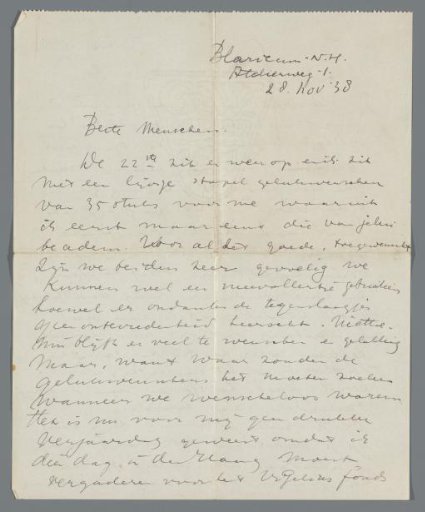 Blaricum. N.H.
Atelierweg 1.
28 Nov '38
Beste Menschen.
De 22ste zit er weer op en ik zit
met een stapel gelukwenschen
van 35 stuks voor me waaruit
ik eerst maar eens die van jelui
beadem. Voor al het goede, toegewenscht
zijn we beiden zeer gevoelig we
kunnen wel een
hoewel er ondanks de tegenslagjes
geen ontevredenheid heerscht. Natuurlijk
er veel te wenschen
maar, want waar zouden de
gelukwenschers het moeten zoeken
wanneer we wenscheloos waren
Het is nu voor mij geen drukke
verjaardag geweest omdat ik
dien dag in den Haag moest
vergaderen voor het fonds